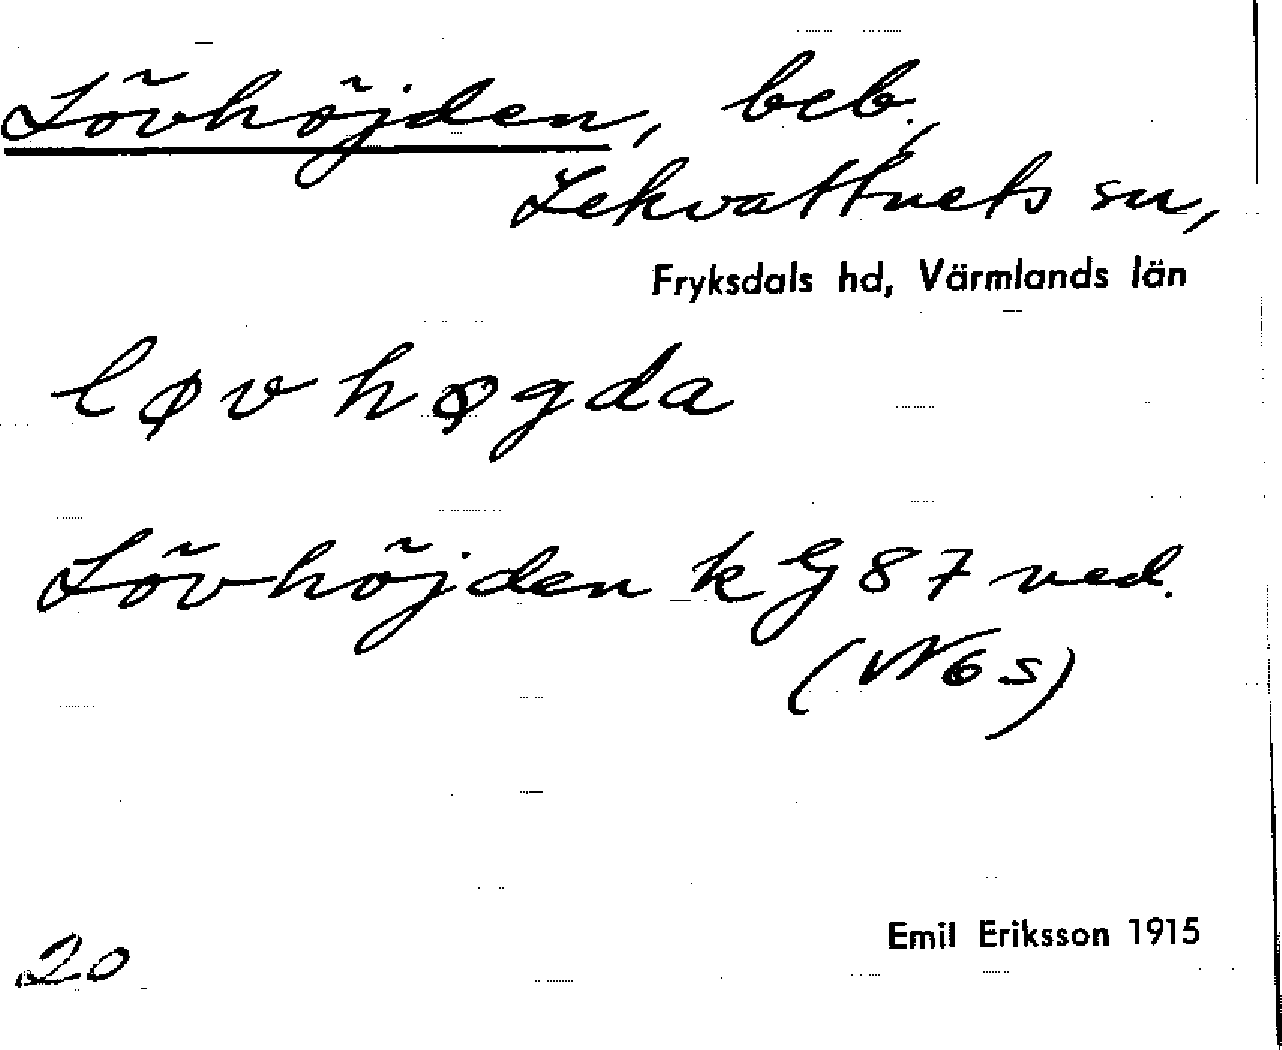 Lövhöjden, beb.,
Lekvattnets sn,
Fryksdals hd, Värmlands län
løvhøgda
Lövhöjden k G 87 ned.
(W 6 s)
Emil Eriksson 1915
20